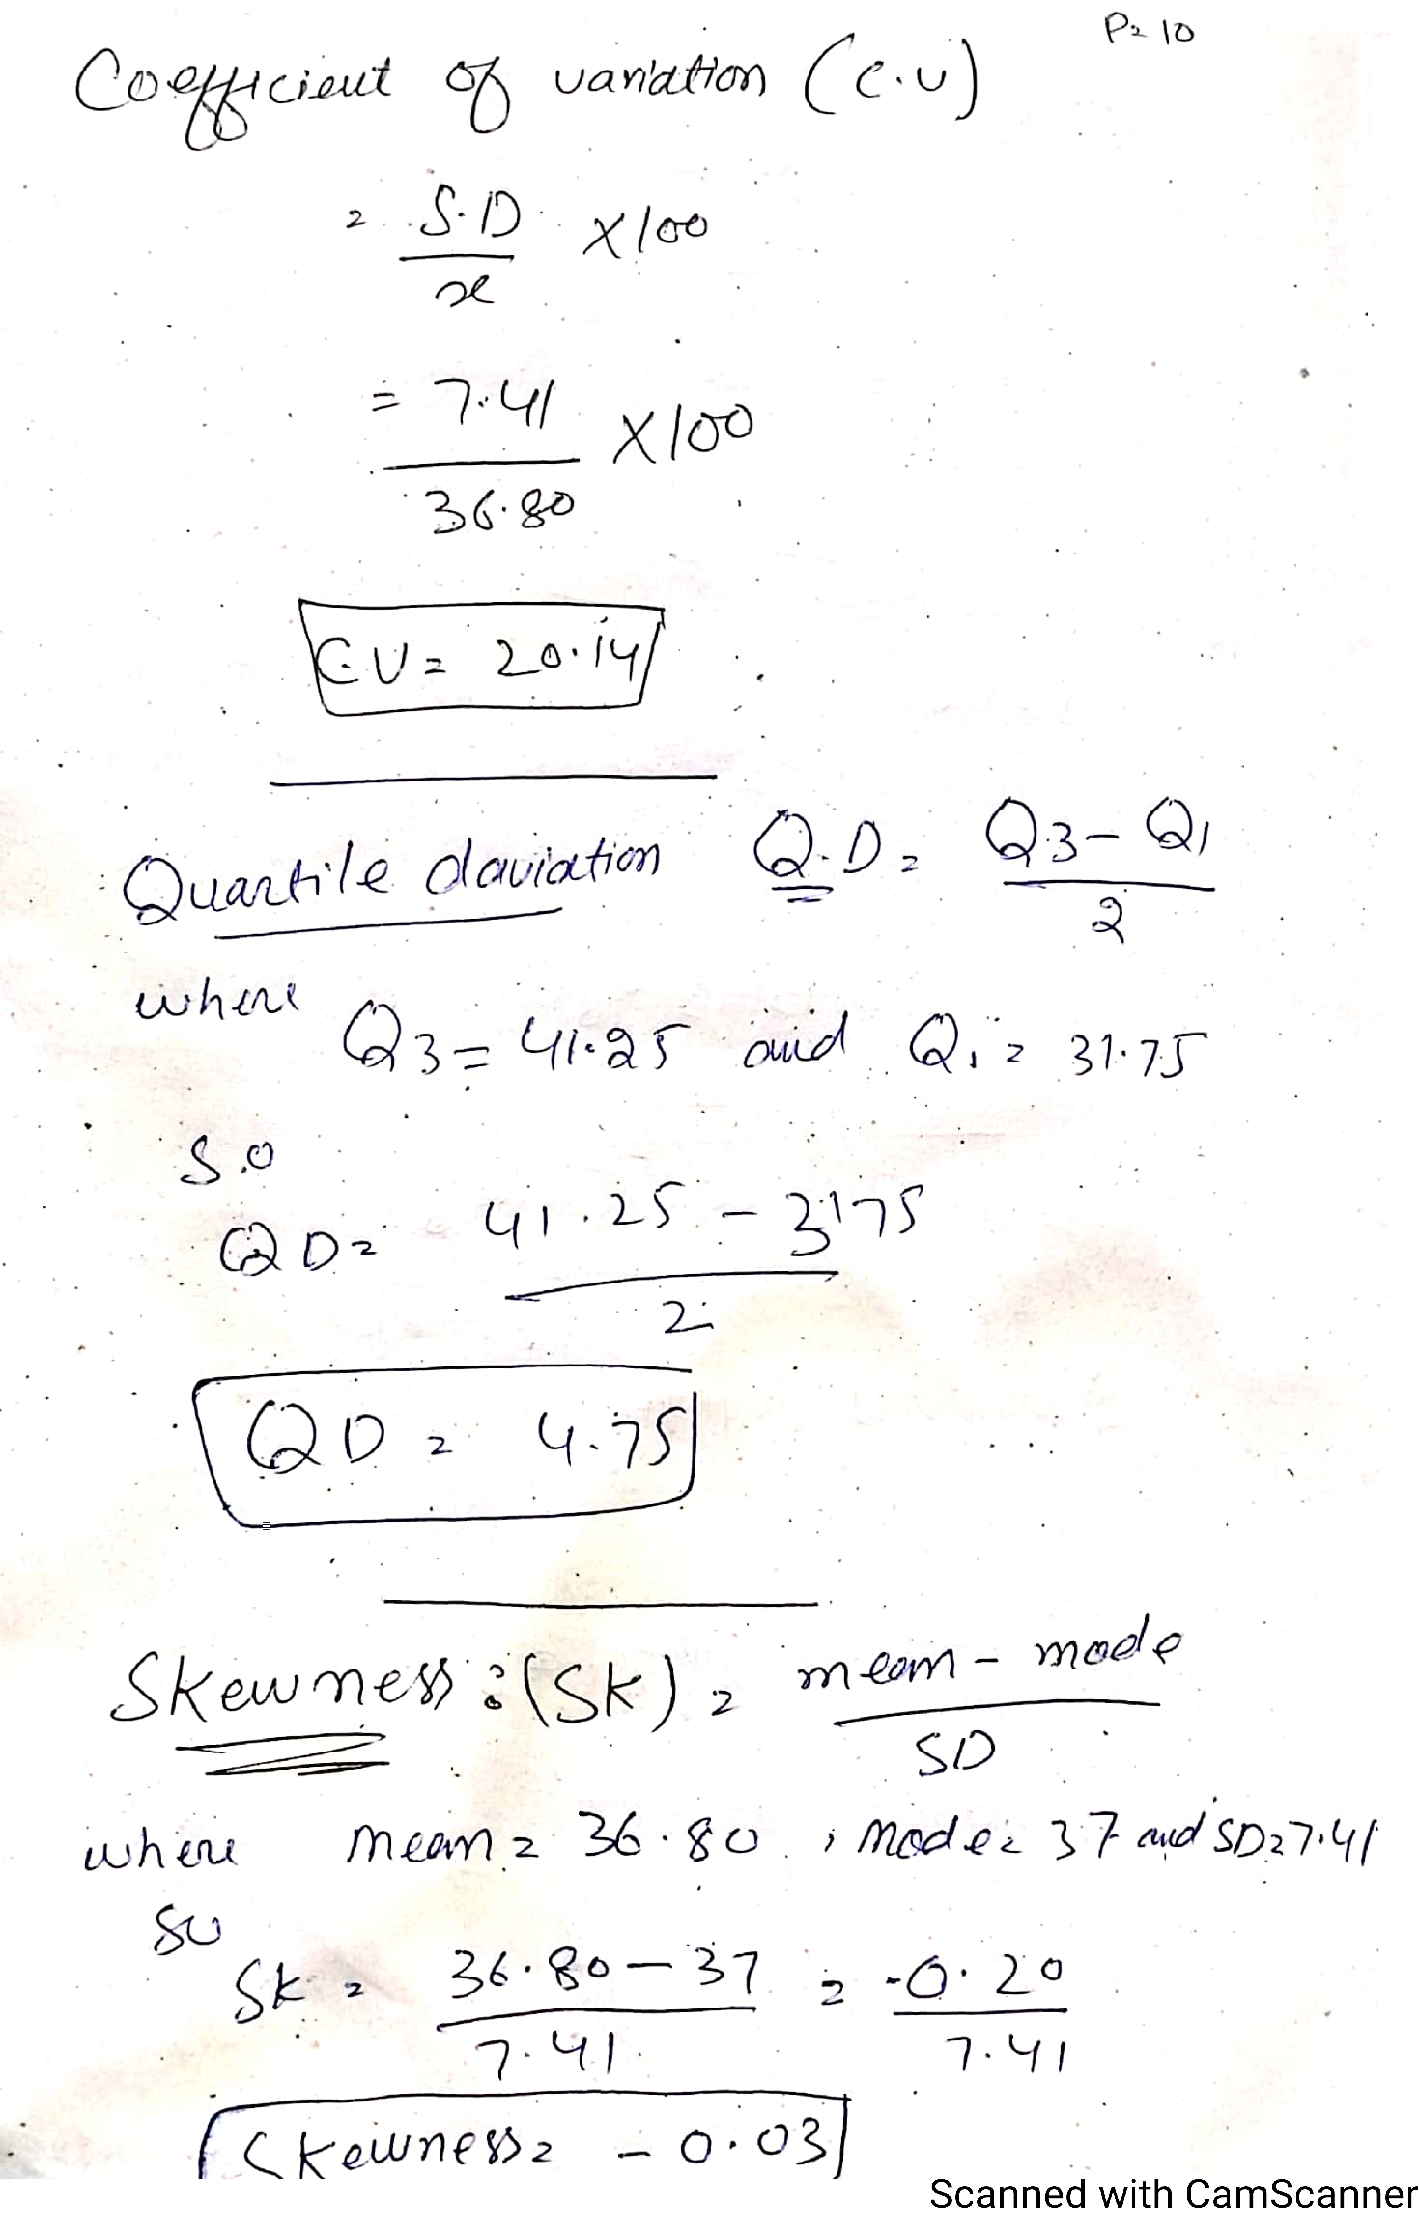 P= 10
Coefficient of variation (C.V)
= S.D / x × 100
= 7.41 / 36.80 × 100
C.V = 20.14
Quartile daviation Q.D = Q3 - Q1 / 2
where Q3 = 41.25 and Q1 = 31.75
So
QD = 41.25 - 3175 / 2
QD = 4.75
Skewness : (SK) = mean - mode / SD
where mean = 36.80, Mode = 37 and SD = 7.41
So
SK = 36.80 - 37 / 7.41 = -0.20 / 7.41
Skewness = - 0.03
Scanned with CamScanner